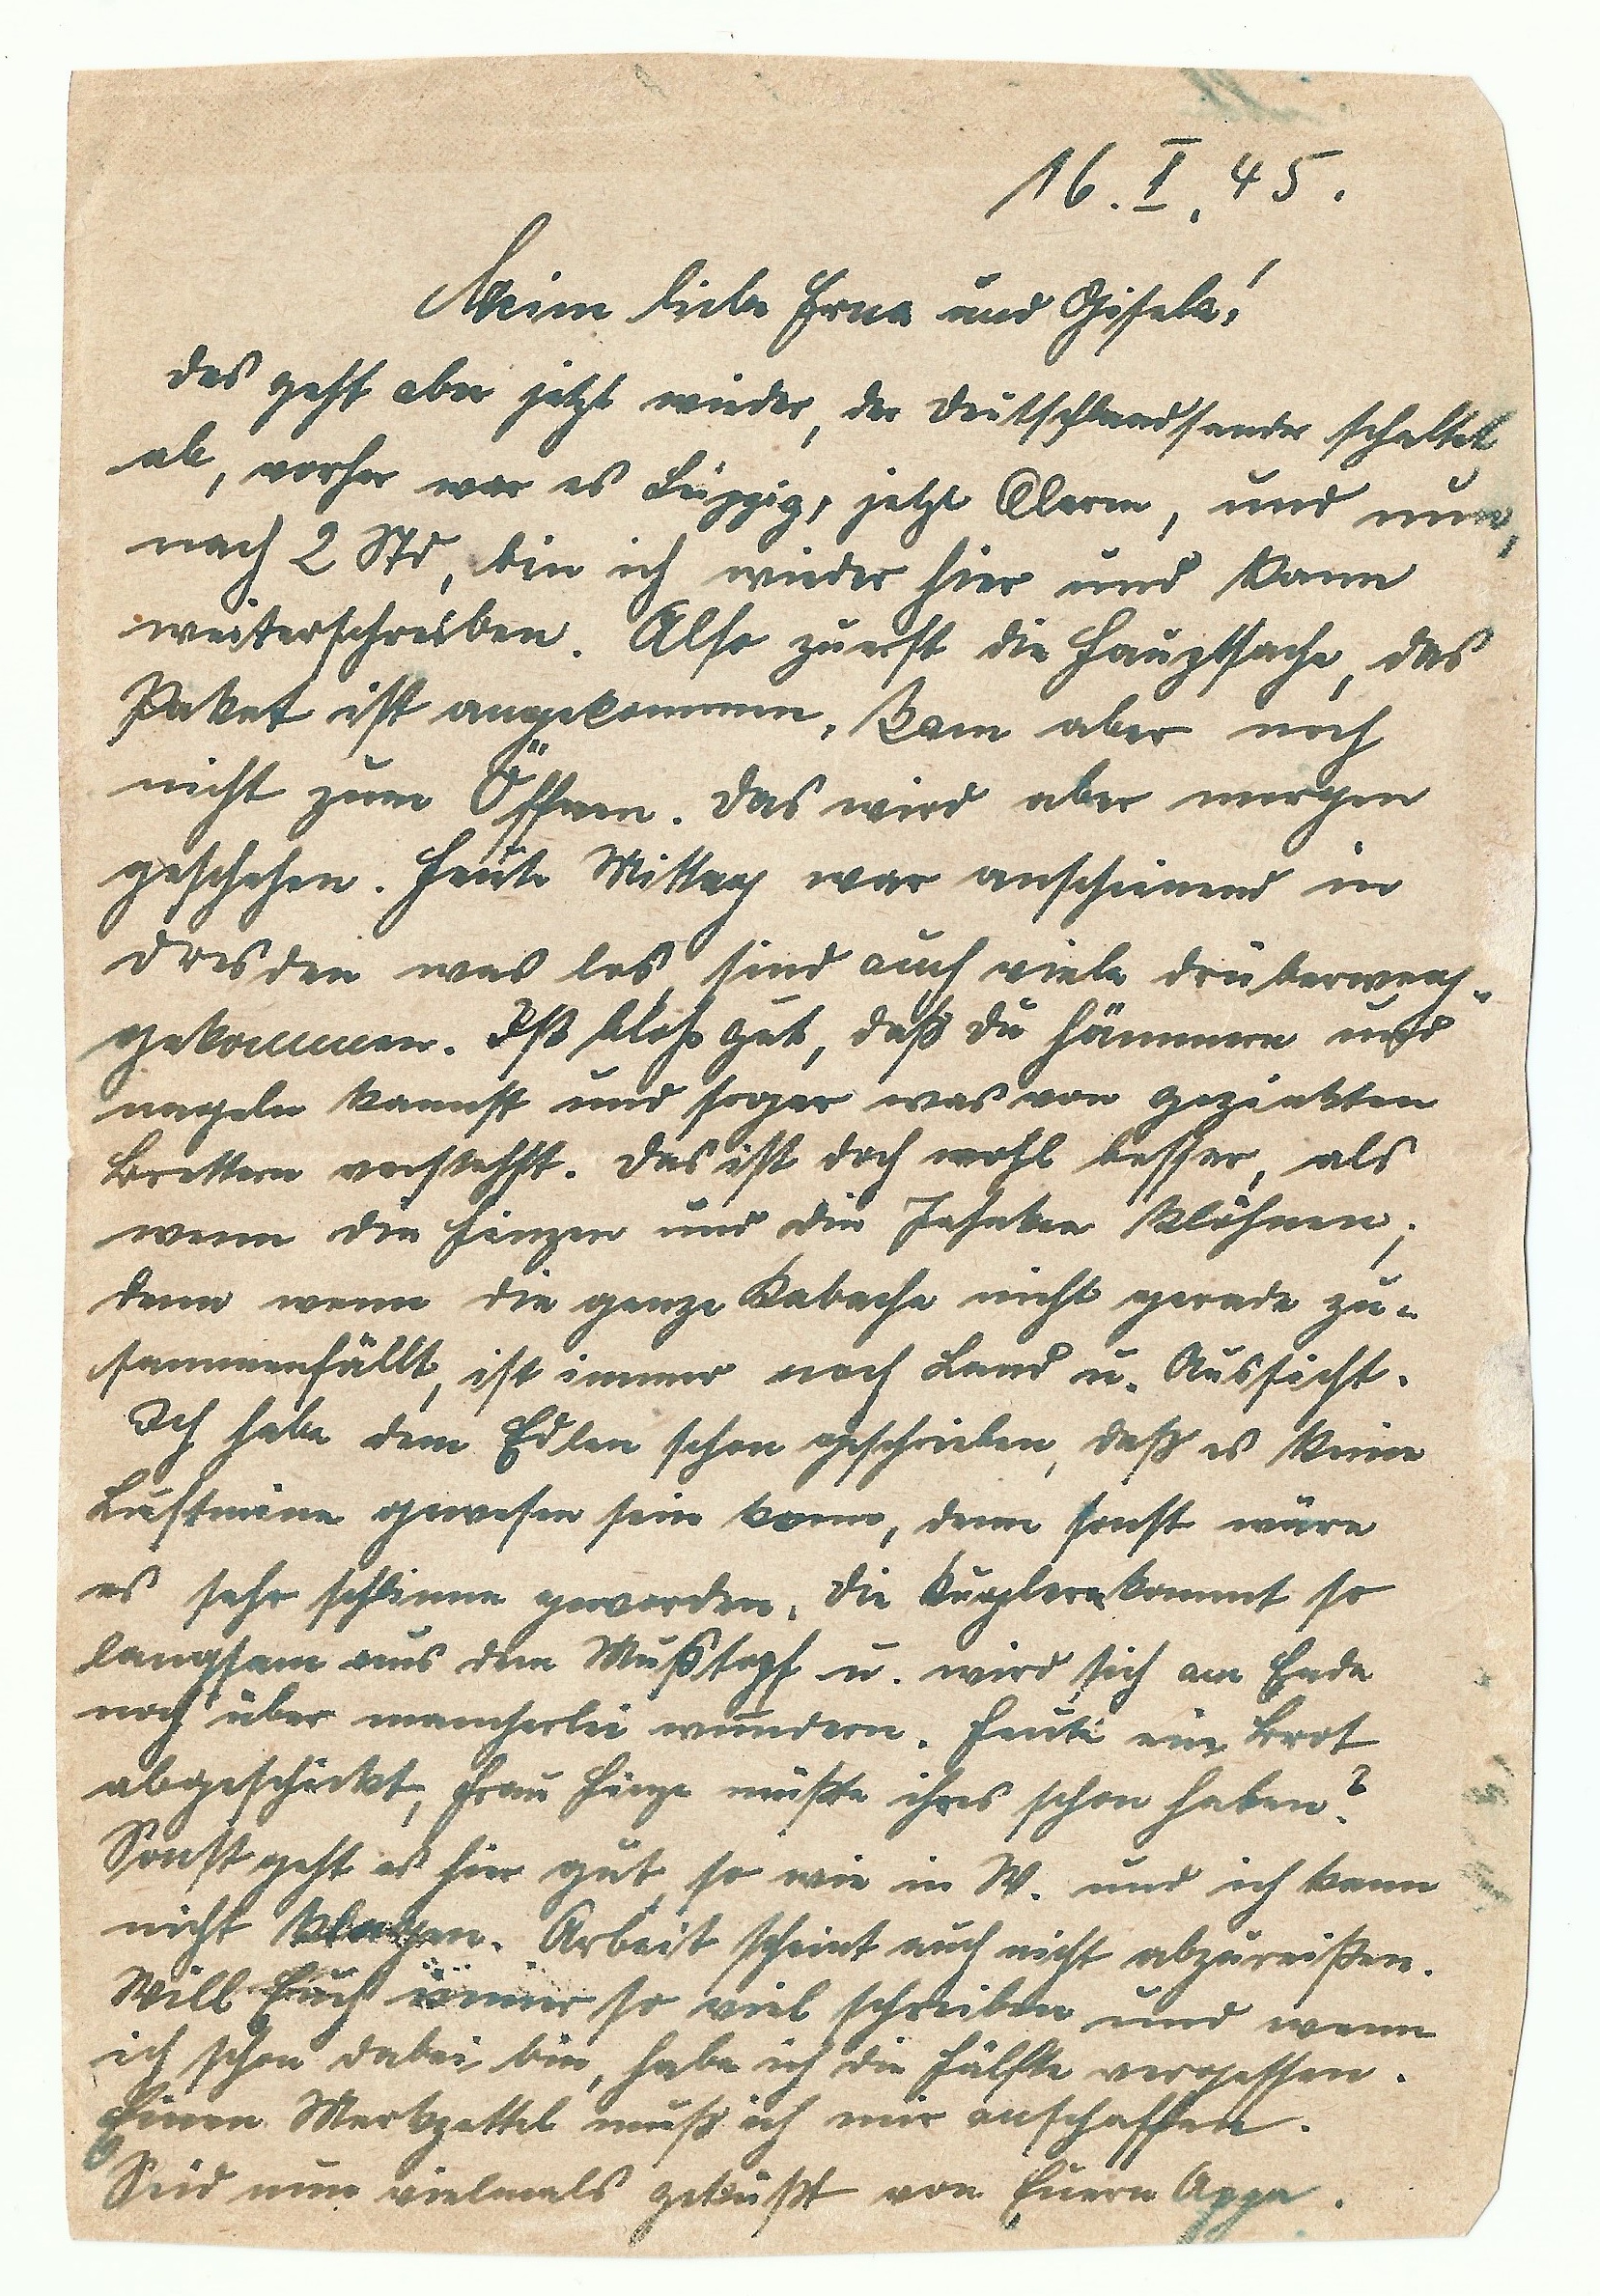 16. I. 45.
Meine liebe Erna und Gisela!
Das geht aber jetzt wieder, der Deutschlandsender schaltet
ab, vorher war es Leipzig, jetzt Alarm, und nun,
nach 2 Std, bin ich wieder hier und kann
weiterschreiben. Also zuerst die Hauptsache, das
Paket ist angekommen. Kam aber noch
nicht zum Öffnen. Das wird aber morgen
geschehen. Heute Mittag war anscheinend in
Dresden was los, sind auch viele drüberweg-
gekommen. Ist bloß gut, daß Du hämmern und
nageln kannst und sogar was von gezinkten
Brettern verstehst. Das ist doch wohl besser, als
wenn die Hinzen und die klöhnen;
denn wenn die ganze Kabache nicht gerade zu-
sammenfällt, ist immer noch Land u. Aussicht.
Ich habe dem Edlen schon geschrieben, daß es keine
Luftmine gewesen sein kann, denn sonst wäre
es sehr schlimm geworden. Die kommt so
langsam aus dem Mußtopf u. wird sich am Ende
noch über mancherlei wundern. Heute ein Brot
abgeschickt, Frau Hinze müßte ihres schon haben?
Sonst geht es hier gut, so wie in W. und ich kann
nicht klagen. Arbeit scheint auch nicht abzureißen.
Will Euch immer so viel schreiben und wenn
ich schon dabei bin, habe ich die Hälfte vergessen.
Einen Merkzettel muß ich mir anschaffen.
Seid nun vielmals geküßt von Euern Appa.